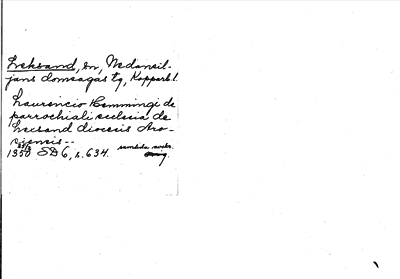 Leksand, sn, Nedansil-
jans domsagas tg, Kopparb.l.
Laurencio Hemmingi de
parrochiali ecclesia de
Lecsand diocesis Aro-
siensis --
1350 SD 6, s. 634. samtida avskr.